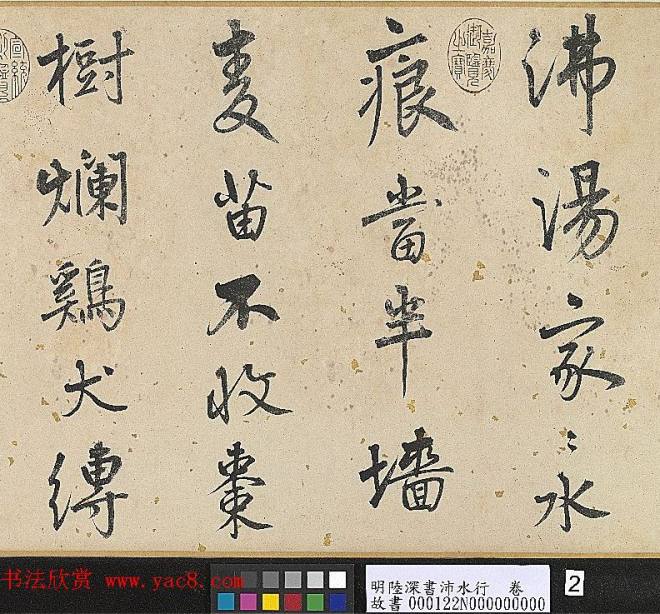 沸湯家〻水
痕當半墻
麦苗不收棗
樹爛鷄犬縛
嘉慶御覽之寶
书法欣赏 www.yac8.com
明陸深書沛水行 卷
故書 000122N000000000
2